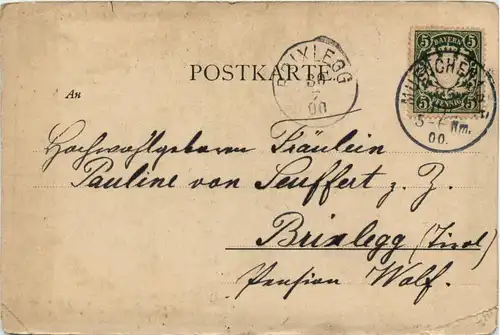 POSTKARTE
BRIXLEGG
7
00
5 BAYERN 5
5 PFENNIG 5
MÜNCHEN
5 7 Nm.
00.
An
Hochwohlgeboren Fräulein
Pauline von Seuffert z. Z.
Brixlegg (Tirol)
Pension Wolf.